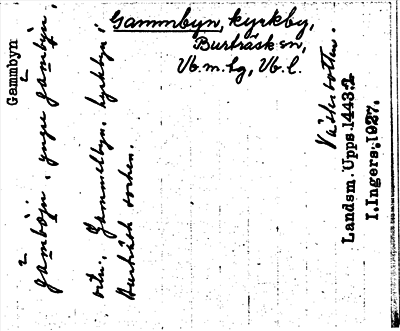 Gammbyn, kyrkby,
Burträsk sn,
Vb.m.hg, Vb.l.
Gammbyn
gåmbɔ̈yn, yngre gåmbyn,
ortn. Gammelbyn, kyrkbyn i
Burträsk socken.
Västerbotten.
Landsm. Upps. 1443:2
I. Ingers. 1927.